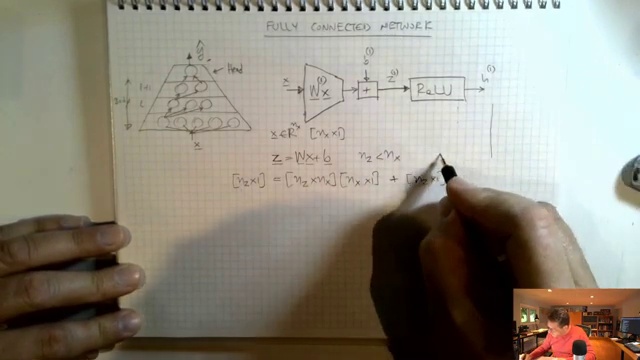 FULLY CONNECTED NETWORK
ŷ
Head
L+1
L
x
x
W^(1) x
b^(1)
+
z^(1)
ReLU
h^(1)
x ∈ R^nx [nx x1]
z = Wx + b nz < nx
[nz x1] = [nz x nx][nx x1] + [nz x1